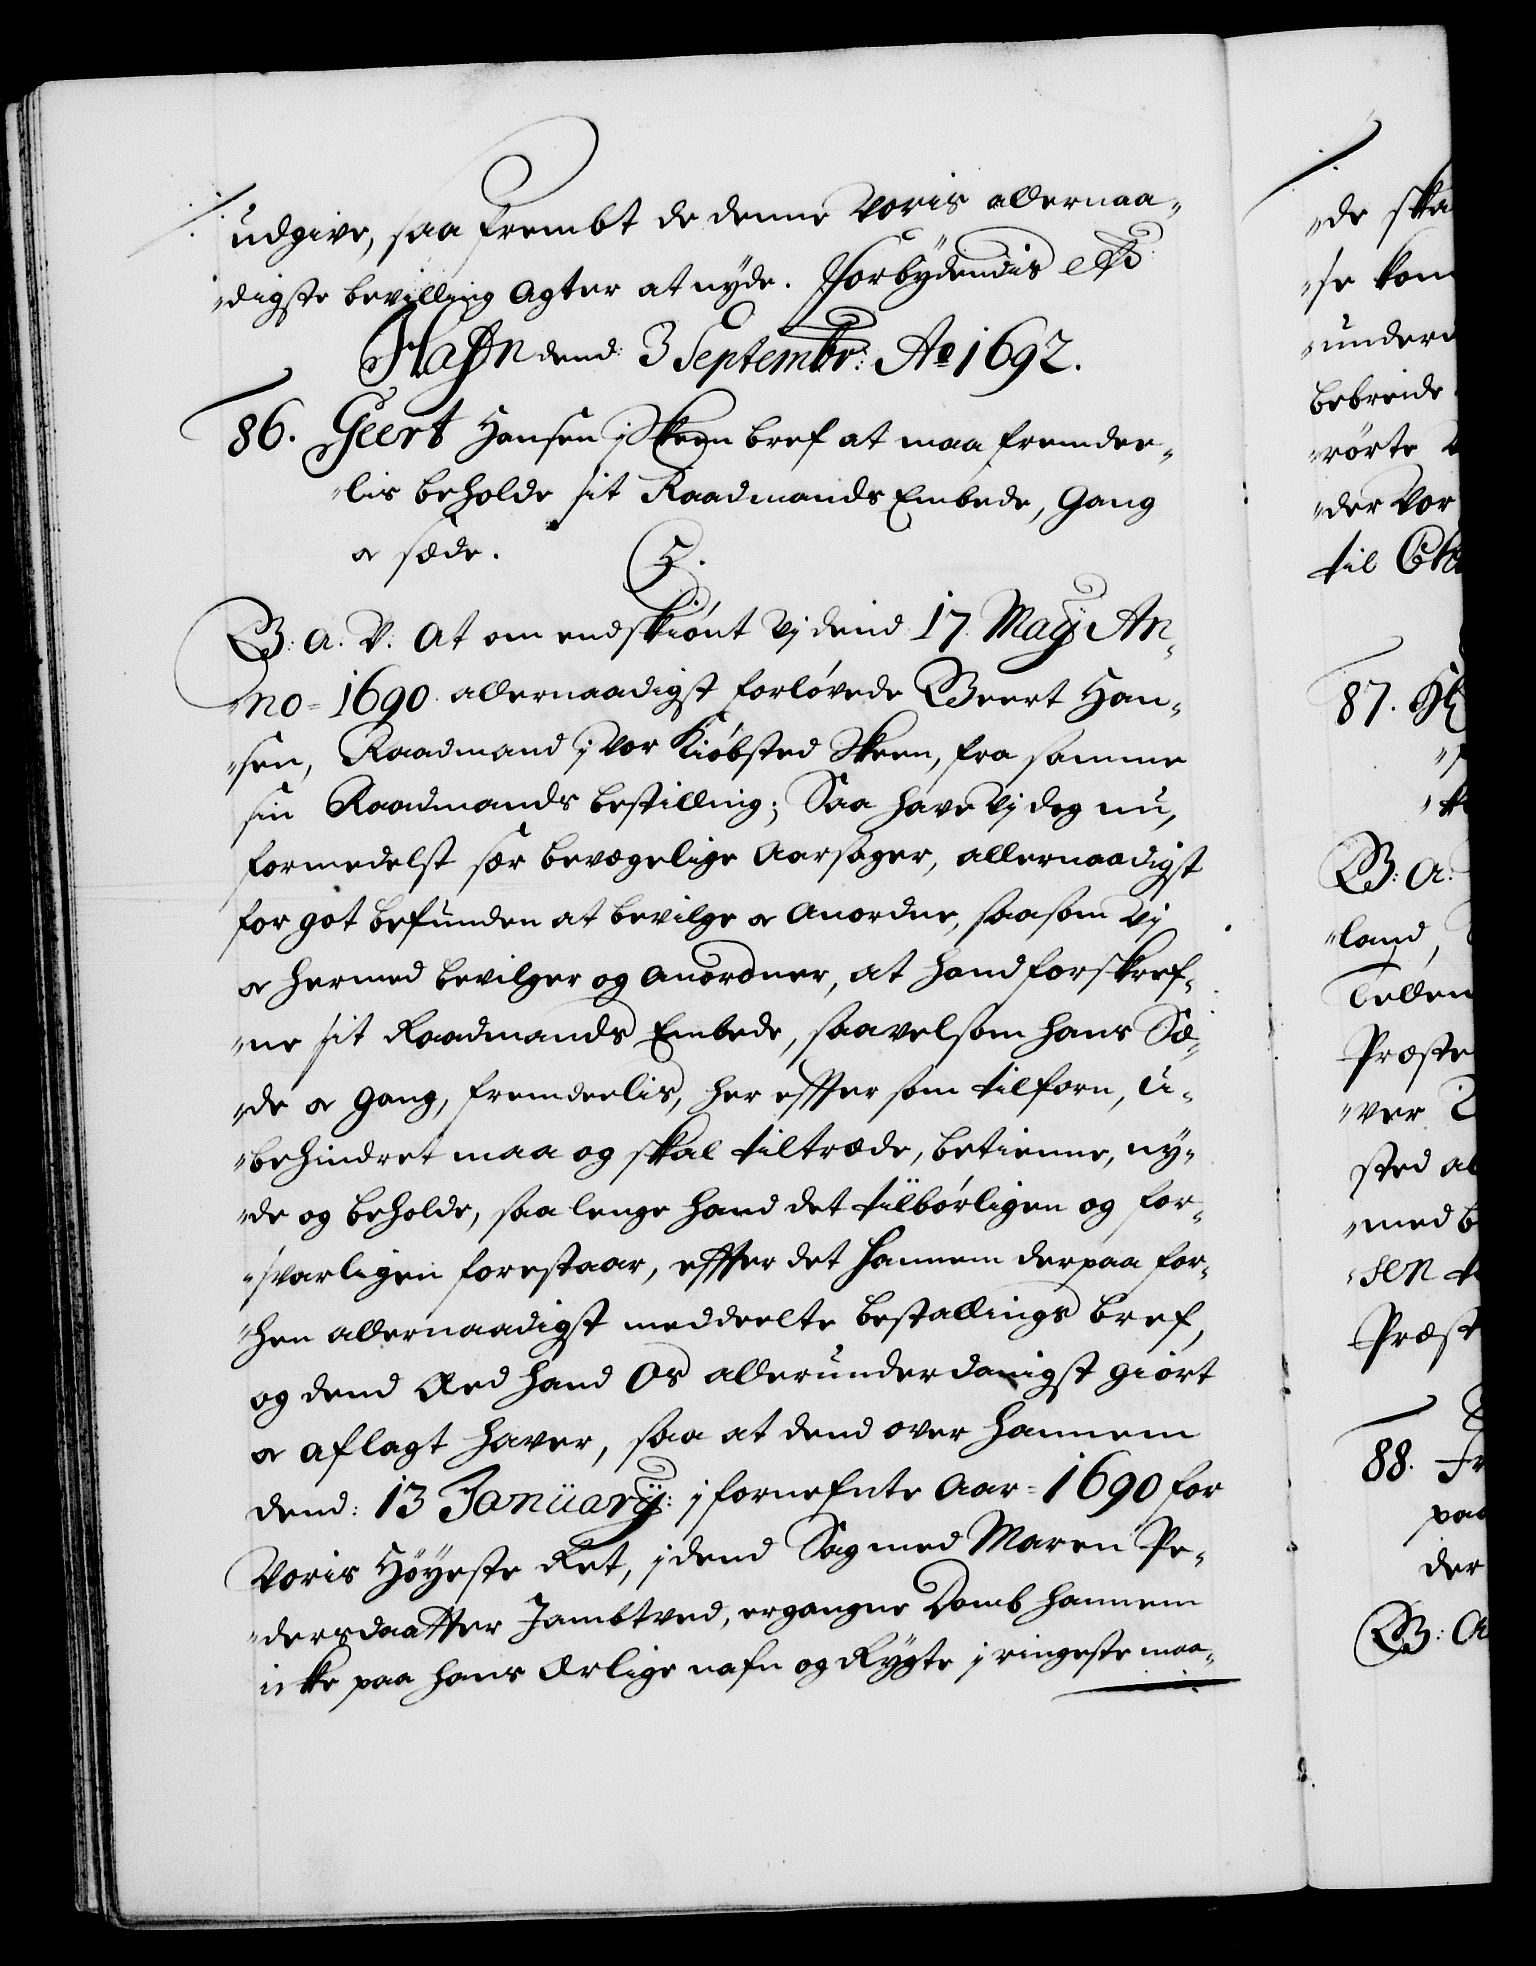 udgive, saa frembt de denne Voris allernaa-
digste bevilling Agter at nyde. Forbydendis etc:
Hafn dend: 3 Septembr: Ao 1692.
86. Geert Hansen i Skeen bref at maa fremdee-
lis beholde sit Raadmands Embede, Gang
og sæde.
C5.
G: A: V: At om endskiönt Vj dend 17. Maÿ An-
no = 1690 allernaadigst forlóvede Geert Han-
sen, Raadmand j Vor Kióbsted Skeen, fra samme
sin Raadmands bestilling; Saa have Vj dog nu,
formedelst sær bevægelige Aarsager, allernaadigst
for got befunden at bevilge og Anordne, saasom Vj
og hermed bevilger og Anordner, at hand forskref-
ne sit Raadmands Embede, saavelsom hans Sæ-
de og Gang, fremdeelis, her effter som tilforn, U-
behindret maa og skal tiltræde, betienne, ny-
de og beholde, saa lenge hand det tilbórligen og for-
svarligen forestaar, effter det hannem derpaa for-
hen allernaadigst meddeelte bestallings bref,
og dend Æed hand Os allerunderdanigst giört
og aflagt haver, saa at dend over hannem
dend: 13 Januarÿ: j fornefnte Aar = 1690 for
Voris Höÿeste Ret, j dend Sag med Maren Pe-
dersdaatter Jambtved, ergangne Domb hannem
icke paa hans Ærlige nafn og Rygte j ringeste maa-
de ska
se kom
under
bebreide
rörte
der Vor
til Ch
87.
G: A:
land,
Tellem
Præste
ver
sted al
med b
sen
Præst
88. Fr
paa
der
G: A